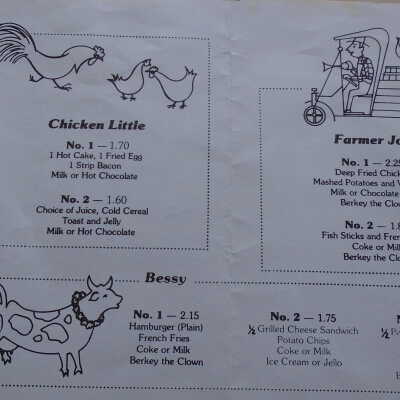 Chicken Little
No. 1 — 1.70
1 Hot Cake, 1 Fried Egg
1 Strip Bacon
Milk or Hot Chocolate
No. 2 — 1.60
Choice of Juice, Cold Cereal
Toast and Jelly
Milk or Hot Chocolate
Farmer Jo
No. 1 — 2.25
Deep Fried Chick
Mashed Potatoes and V
Milk or Chocolate
Berkey the Clow
No. 2 — 1.8
Fish Sticks and Fren
Coke or Mil
Berkey the Clo
Bessy
No. 1 — 2.15
Hamburger (Plain)
French Fries
Coke or Milk
Berkey the Clown
No. 2 — 1.75
½ Grilled Cheese Sandwich
Potato Chips
Coke or Milk
Ice Cream or Jello
½ P